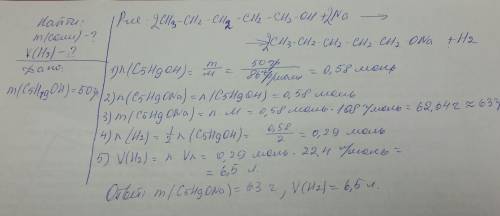 Найти:
m(соли)-?
V(H₂)-?
Дано:
m(C₅H₉OH)=50гр
Р-ие 2CH₃-CH₂-CH₂-CH₂-CH₂-OH+2Na →
→2CH₃-CH₂-CH₂-CH₂-CH₂ONa+H₂
1) n(C₅H₉OH)= m/M = 50гр/86г/моль = 0,58 моль
2) n(C₅H₉ONa)=n(C₅H₉OH)=0,58 моль
3) m(C₅H₉ONa)= n·M = 0,58 моль·108г/моль=62,64г≈63г
4) n(H₂)=1/2 n(C₅H₉OH)= 0,58/2 = 0,29 моль
5) V(H₂)= n·Vn = 0,29 моль·22,4 л/моль=
= 6,5 л.
Ответ: m(C₅H₉ONa)=63 г, V(H₂)=6,5 л.